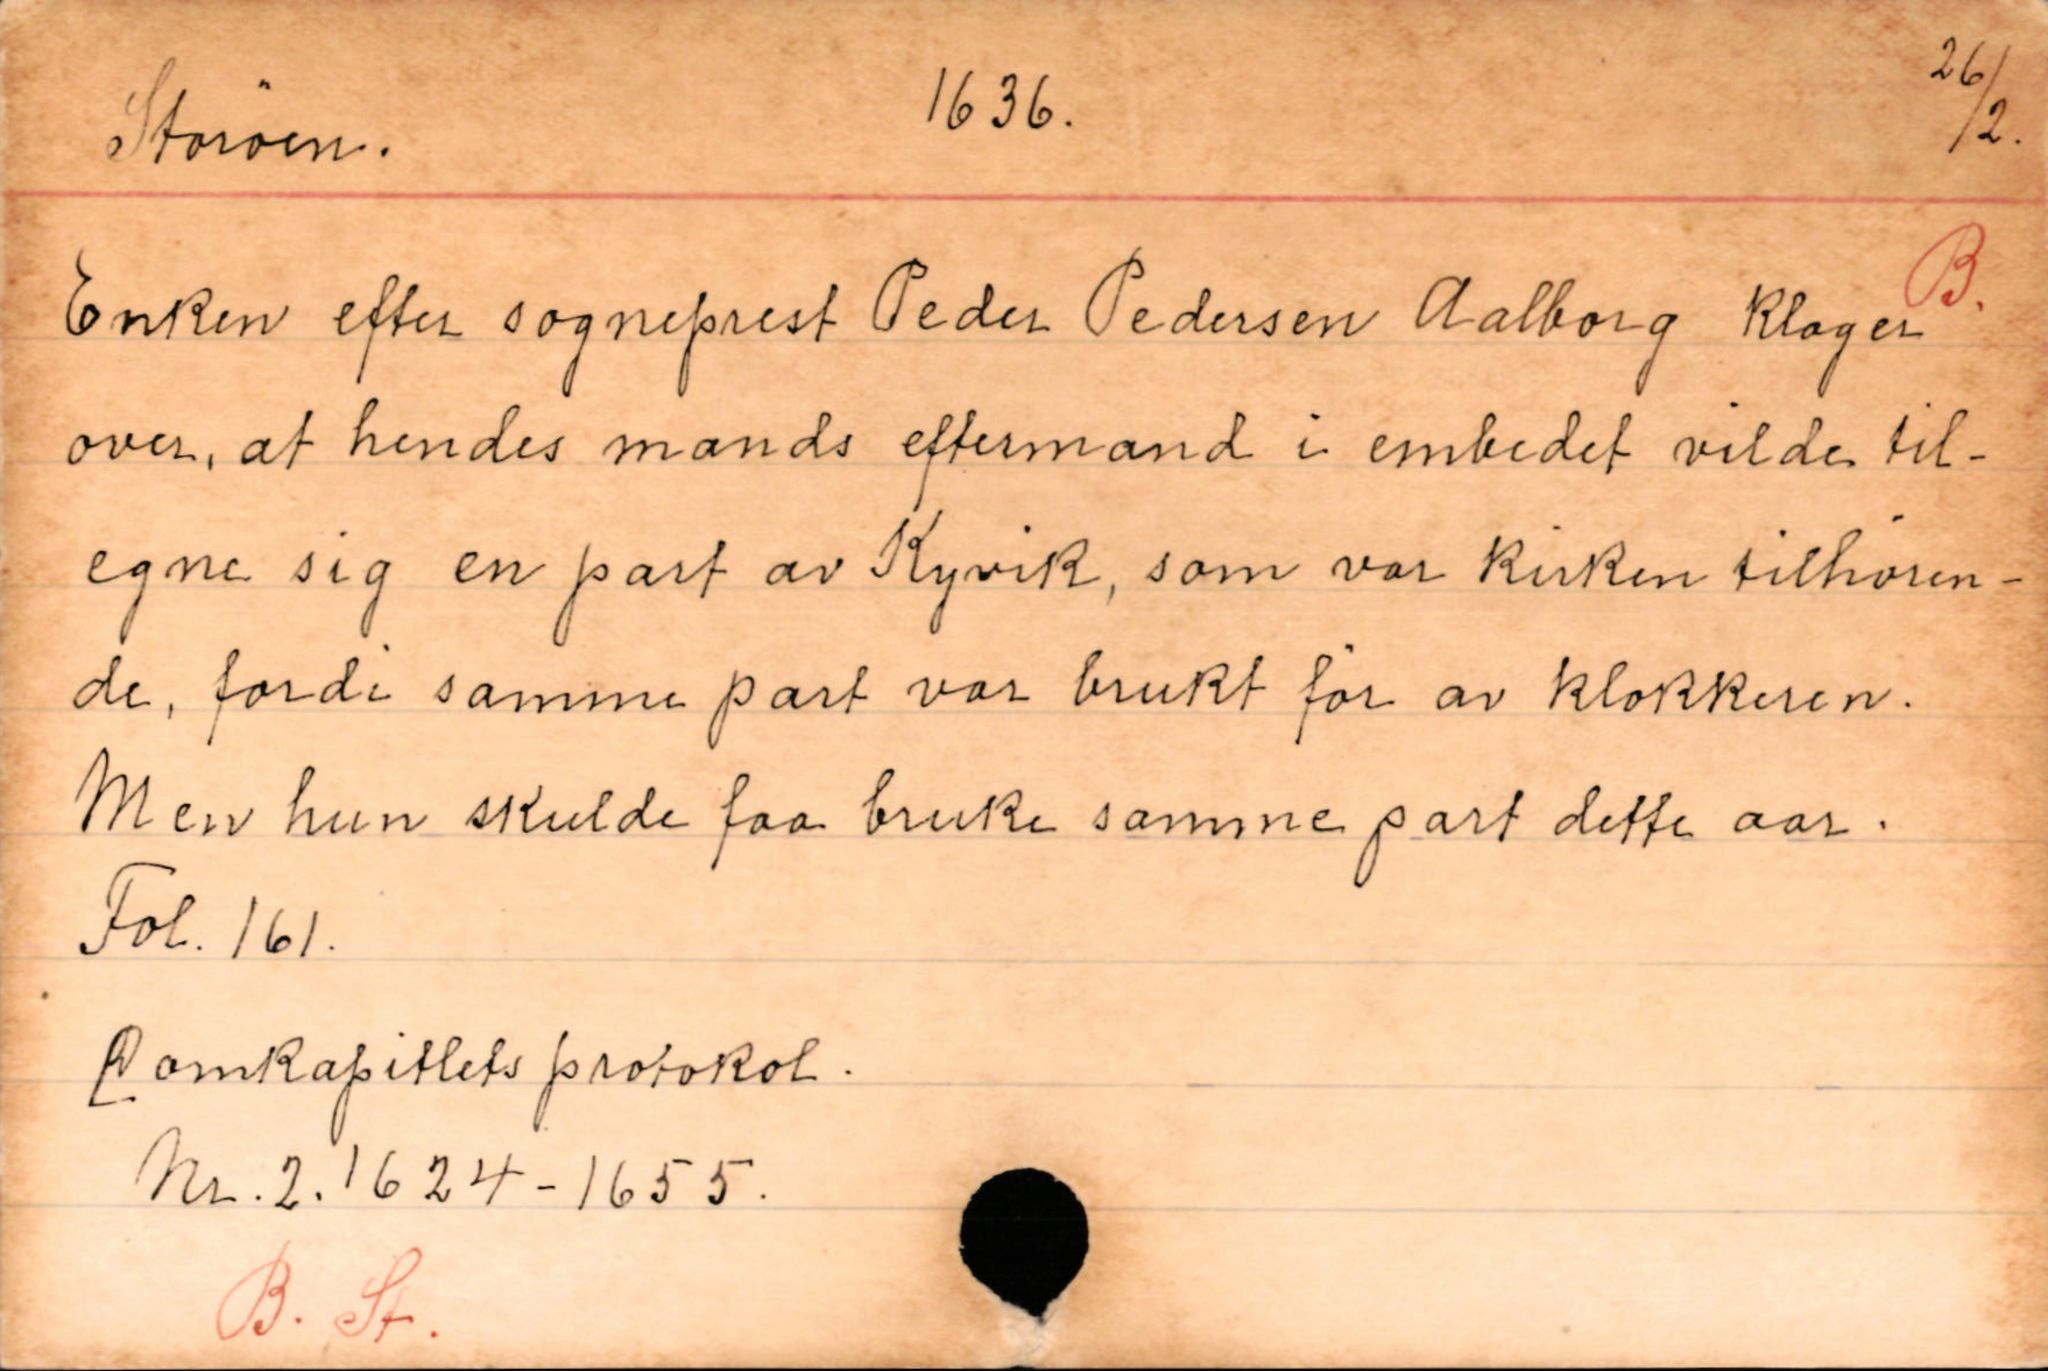 Storöen. 1636. 26/2.
B.
Enken efter sogneprest Peder Pedersen Aalborg klager
over, at hendes mands eftermand i embedet vilde til-
egne sig en part av Kyvik, som var kirken tilhören-
de, fordi samme part var brukt för av klokkeren.
Men hun skulde faa bruke samme part dette aar.
Fol. 161.
Domkapitlets protokol.
Nr. 2. 1624-1655.
B. St.